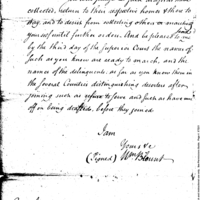 collected, return to their respective homes & then to
day, and to desist from collecting others or marching
yourself until further orders. And be pleased to send
me by the third day of the Superior Court the names of
such as you know are ready to march, and the
names of the delinquents, as far as you know them in
the several Counties distinguishing deserters after
joining such as refuse to serve and such as have
off on being drafted, before they joined
I am
Yours &c
(Signed) Wm Blount